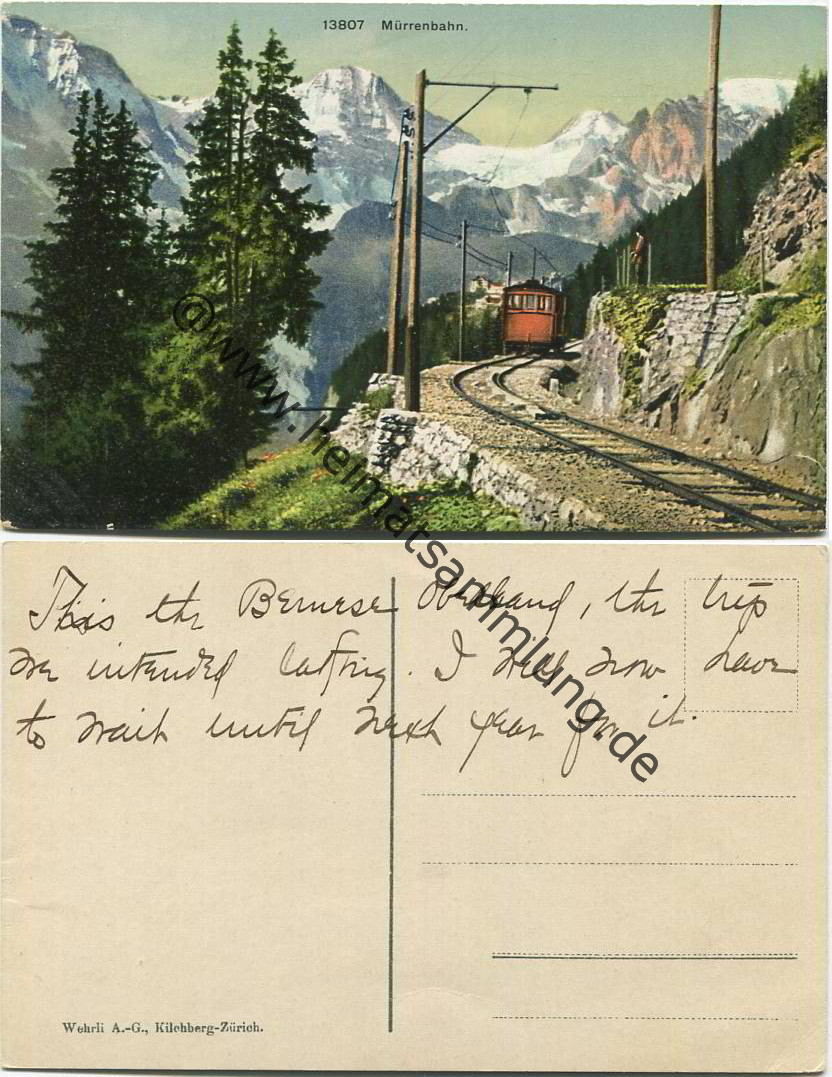 13807 Mürrenbahn.
@www.heimatsammlung.de
This is the Bernese Oberland, the trip
we intended taking. I will now have
to wait until next year for it.
Wehrli A.-G., Kilchberg-Zürich.